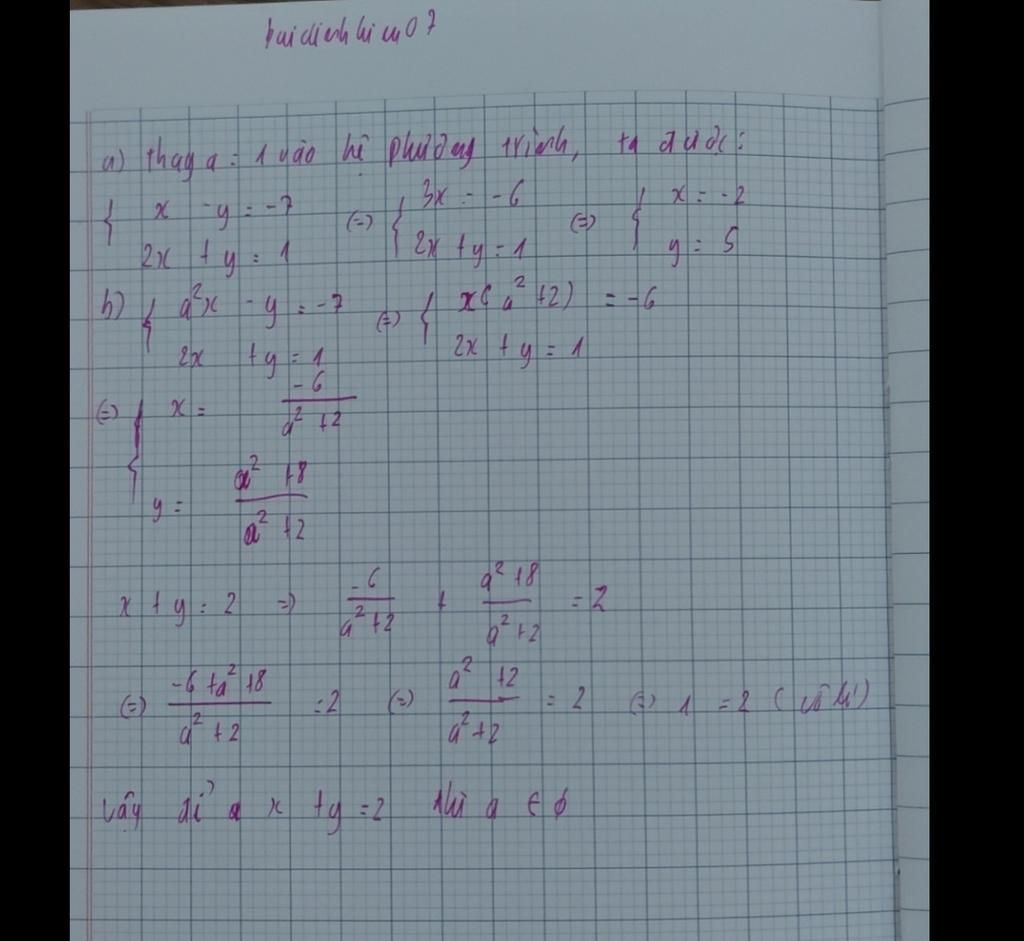 buidinhhieu07
a) thay a = 1 vào hệ phương trình, ta được:
{ x - y = -7 (=) { 3x = -6 (=) { x = -2
2x + y = 1 2x + y = 1 y = 5
b) { a²x - y = -7 (=) { x(a² + 2) = -6
2x + y = 1 2x + y = 1
(=) { x = -6 / a² + 2
y = a² + 8 / a² + 2
x + y = 2 =) -6 / a² + 2 + a² + 8 / a² + 2 = 2
(=) -6 + a² + 8 / a² + 2 = 2 (=) a² + 2 / a² + 2 = 2 (=) 1 = 2 (vô lí)
Vậy để x + y = 2 thì a ∈ ϕ